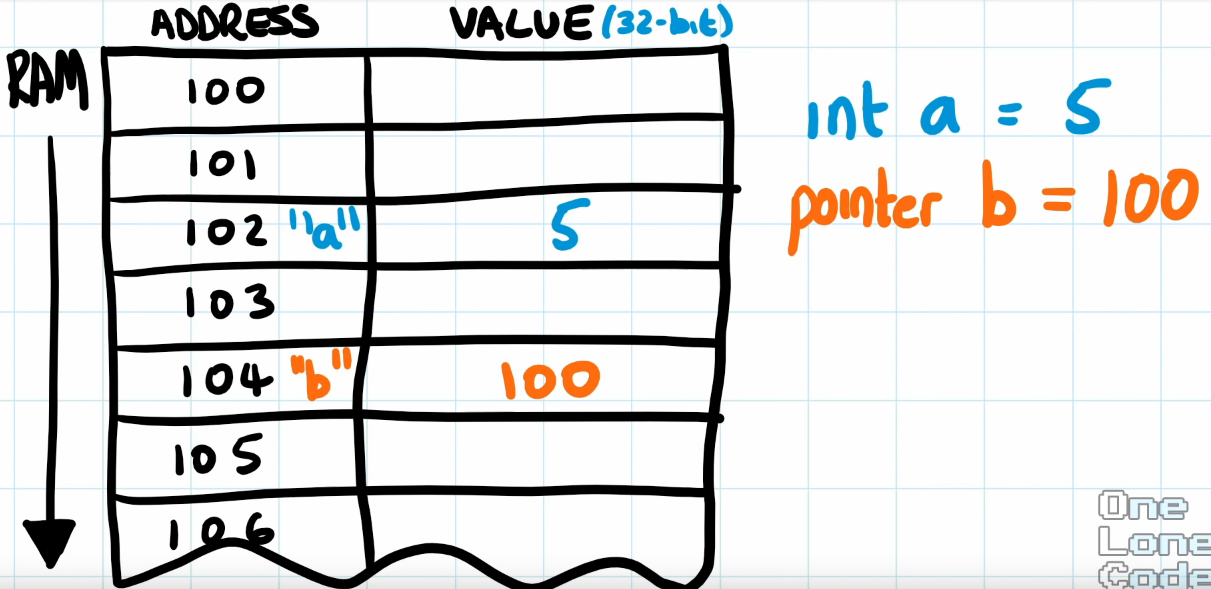 ADDRESS VALUE (32-bit)
RAM
100
101
102 "a" 5
103
104 "b" 100
105
106
int a = 5
pointer b = 100
One
Lone
Code